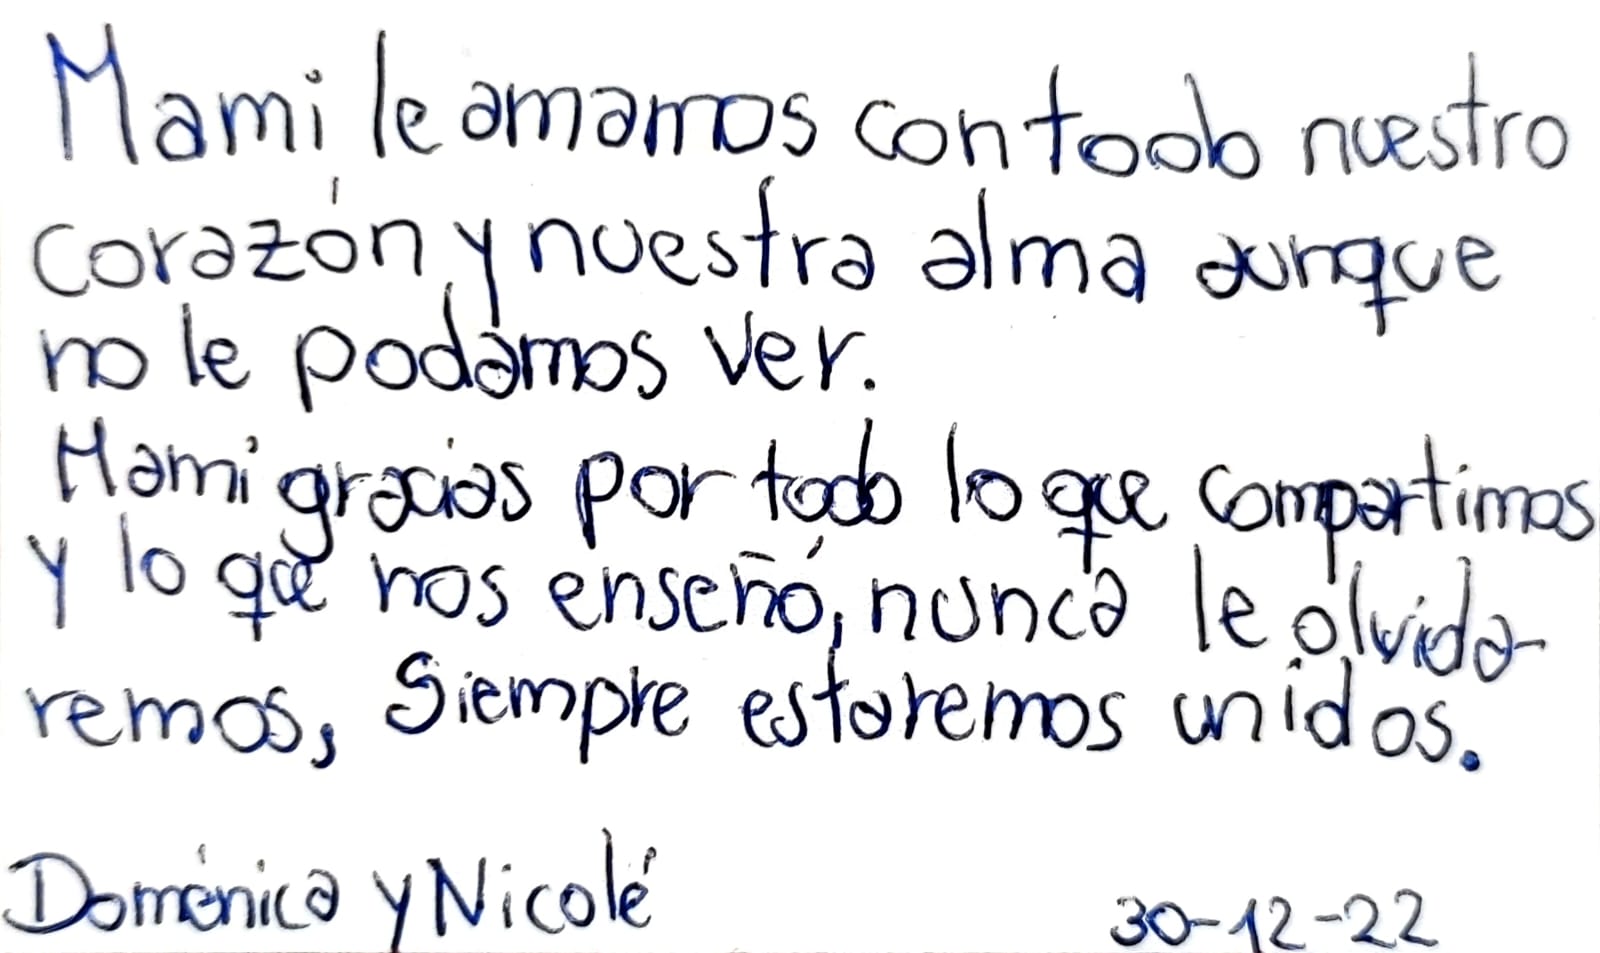 Mami le amamos con todo nuestro
corazón y nuestra alma aunque
no le podamos ver.
Mami gracias por todo lo que compartimos
y lo que nos enseñó, nunca le olvida-
remos, Siempre estaremos unidos.
Doménica y Nicolé
30-12-22